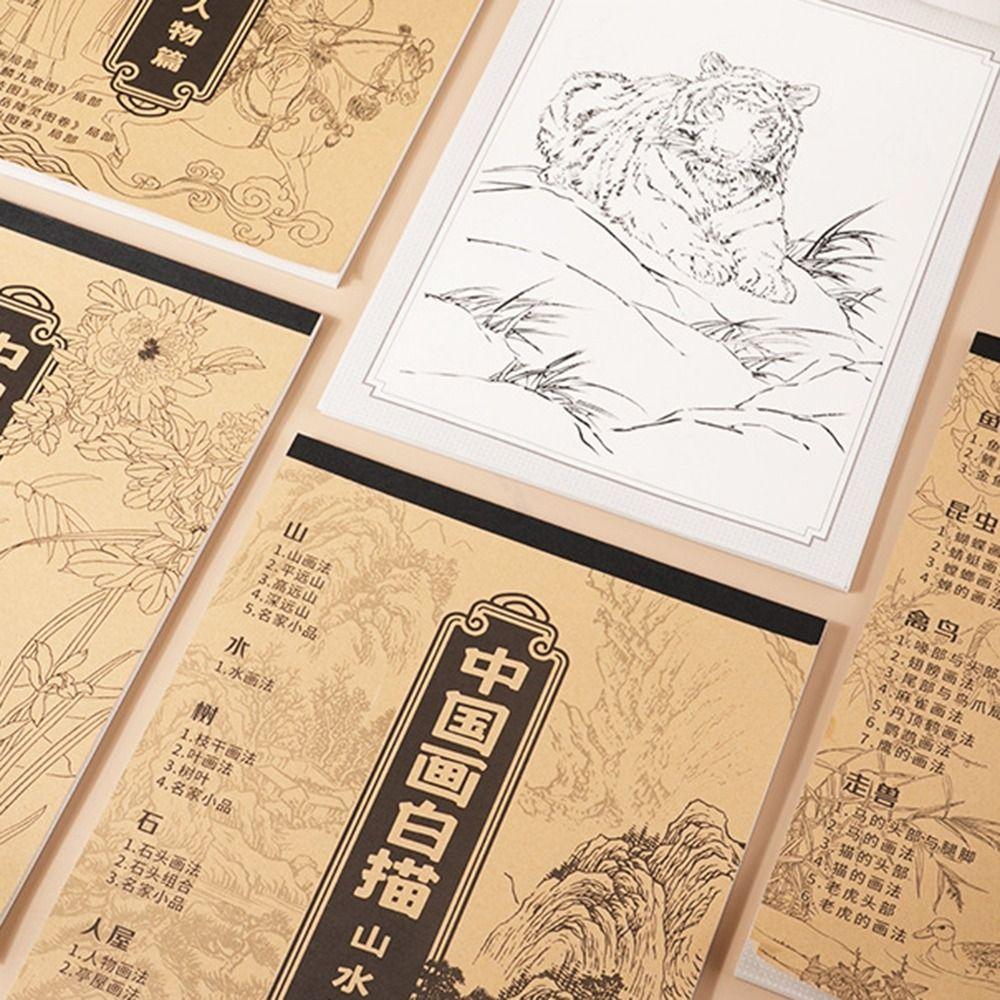 人物篇
局部
九歌图》局部
图》局部
岳降灵图卷》局部
图卷》局部
中
山
1.山画法
2.平远山
3.高远山
4.深远山
5.名家小品
水
1.水画法
树
1.枝干画法
2.叶画法
3.树叶
4.名家小品
石
1.石头画法
2.石头组合
3.名家小品
人屋
1.人物画法
2.亭屋画法
中国画白描
山水
鱼
1.鱼
2.鲤
3.金鱼
昆虫
1.蝴蝶画
2.蜻蜓画
3.螳螂画
4.蝉的画法
禽鸟
1.喙部与头部
2.翅膀画法
3.尾部与鸟爪
4.麻雀画法
5.丹顶鹤画法
6.鹦鹉画法
7.鹰的画法
走兽
1.马的头部与腿脚
2.马的画法
3.猫的头部
4.猫的画法
5.老虎头部
6.老虎的画法